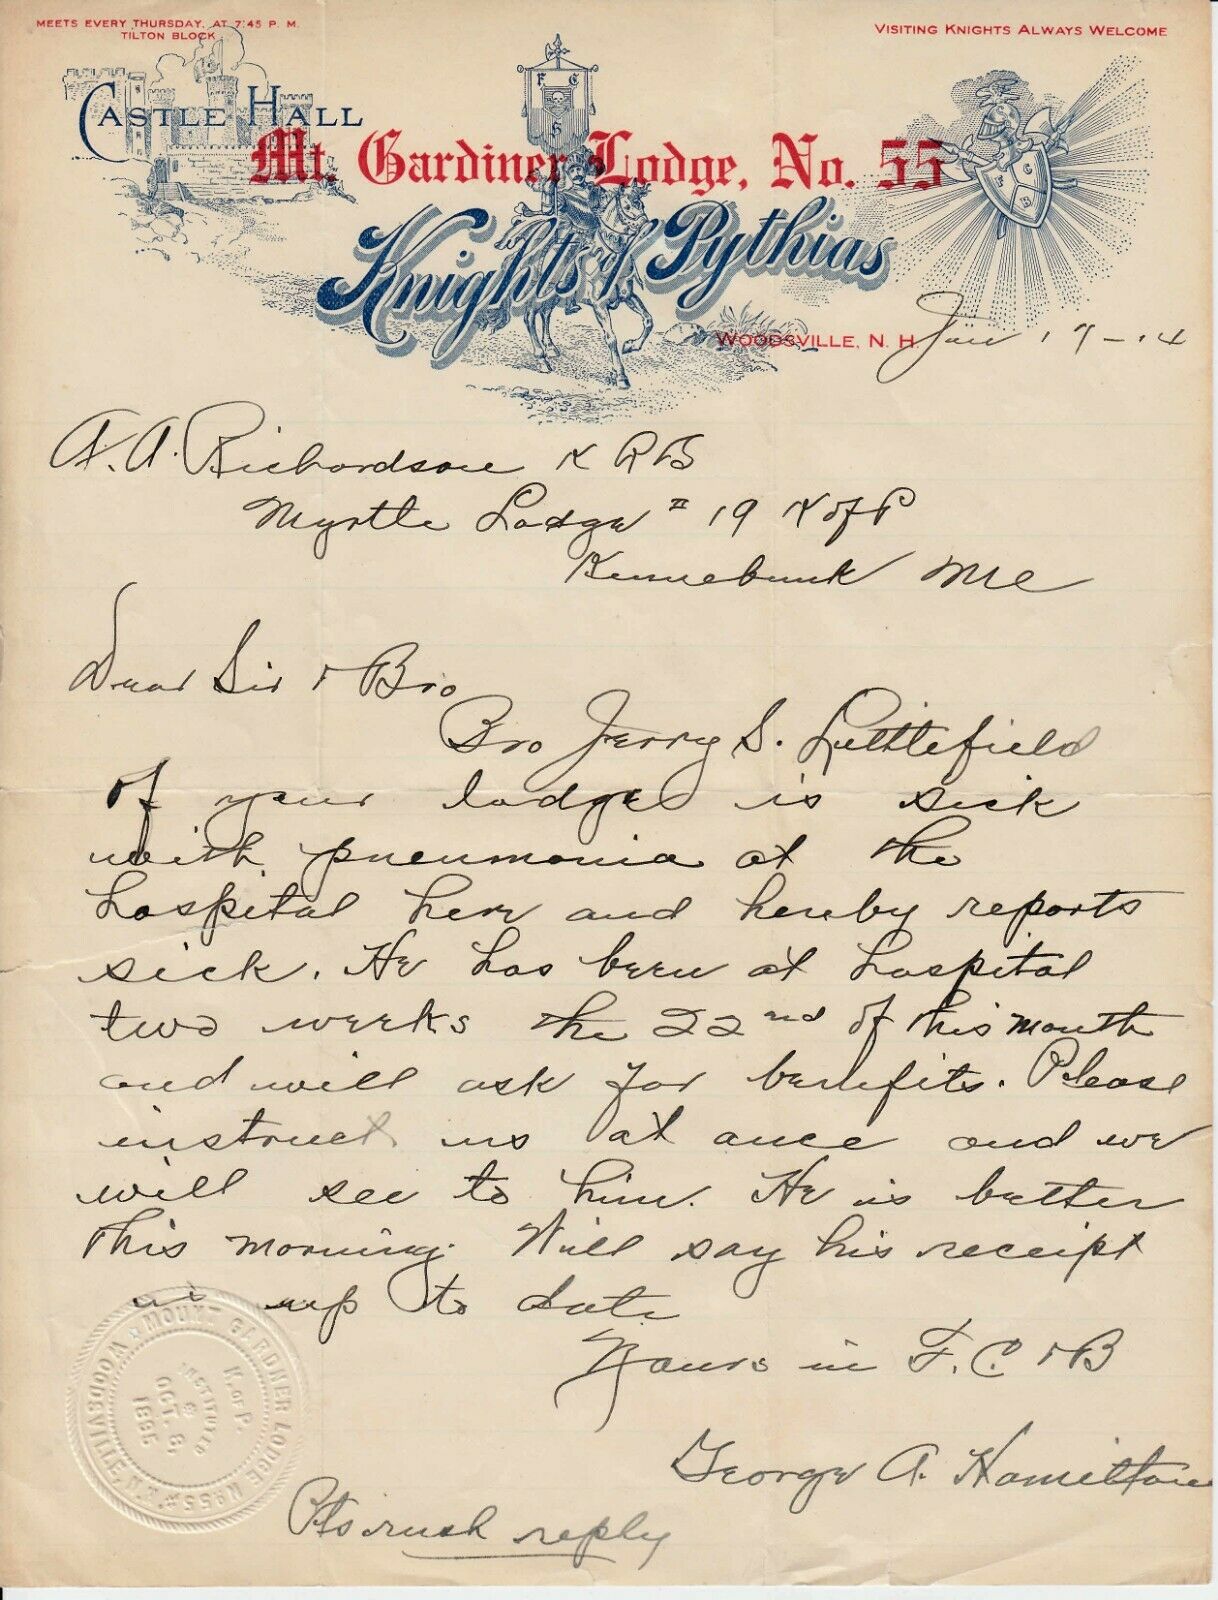 MEETS EVERY THURSDAY, AT 7:45 P. M.
TILTON BLOCK
VISITING KNIGHTS ALWAYS WELCOME
CASTLE HALL
F C
B
Mt. Gardiner Lodge, No. 55
F C B
Knights of Pythias
WOODSVILLE, N. H. Jan 17-14
A. A. Richardson K R B
Myrtle Lodge # 19 K of P
Kennebunk Me
Dear Sir & Bro
Bro Jerry S. Littlefield
of your lodge is sick
with pneumonia at the
hospital here and hereby reports
sick. He has been at hospital
two weeks the 22nd of this month
and will ask for benefits. Please
instruct us at once and we
will see to him. He is better
this morning. Will say his receipt
is up to date
Yours in F. C. & B
George A. Hamilton
Pls rush reply
MOUNT GARDINER LODGE No 55 WOODSVILLE, N.H.
K. OF P.
INSTITUTED
OCT. 8,
1895